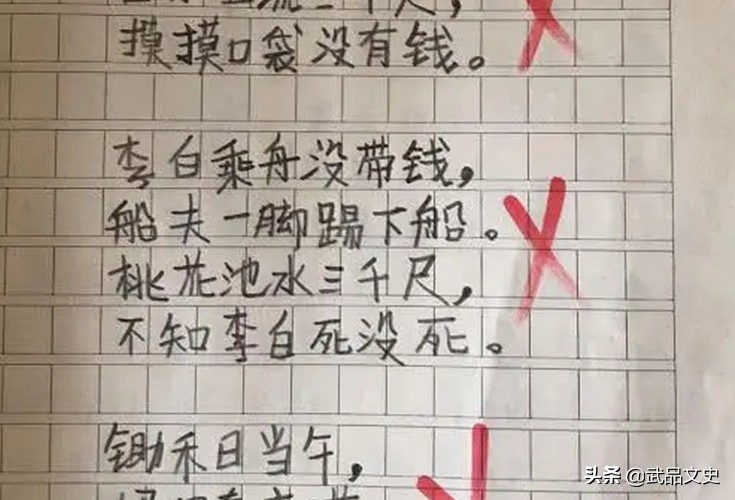 摸摸口袋没有钱。
李白乘舟没带钱,
船夫一脚踢下船。
桃花池水三千尺,
不知李白死没死。
锄禾日当午,
头条 @武品文史